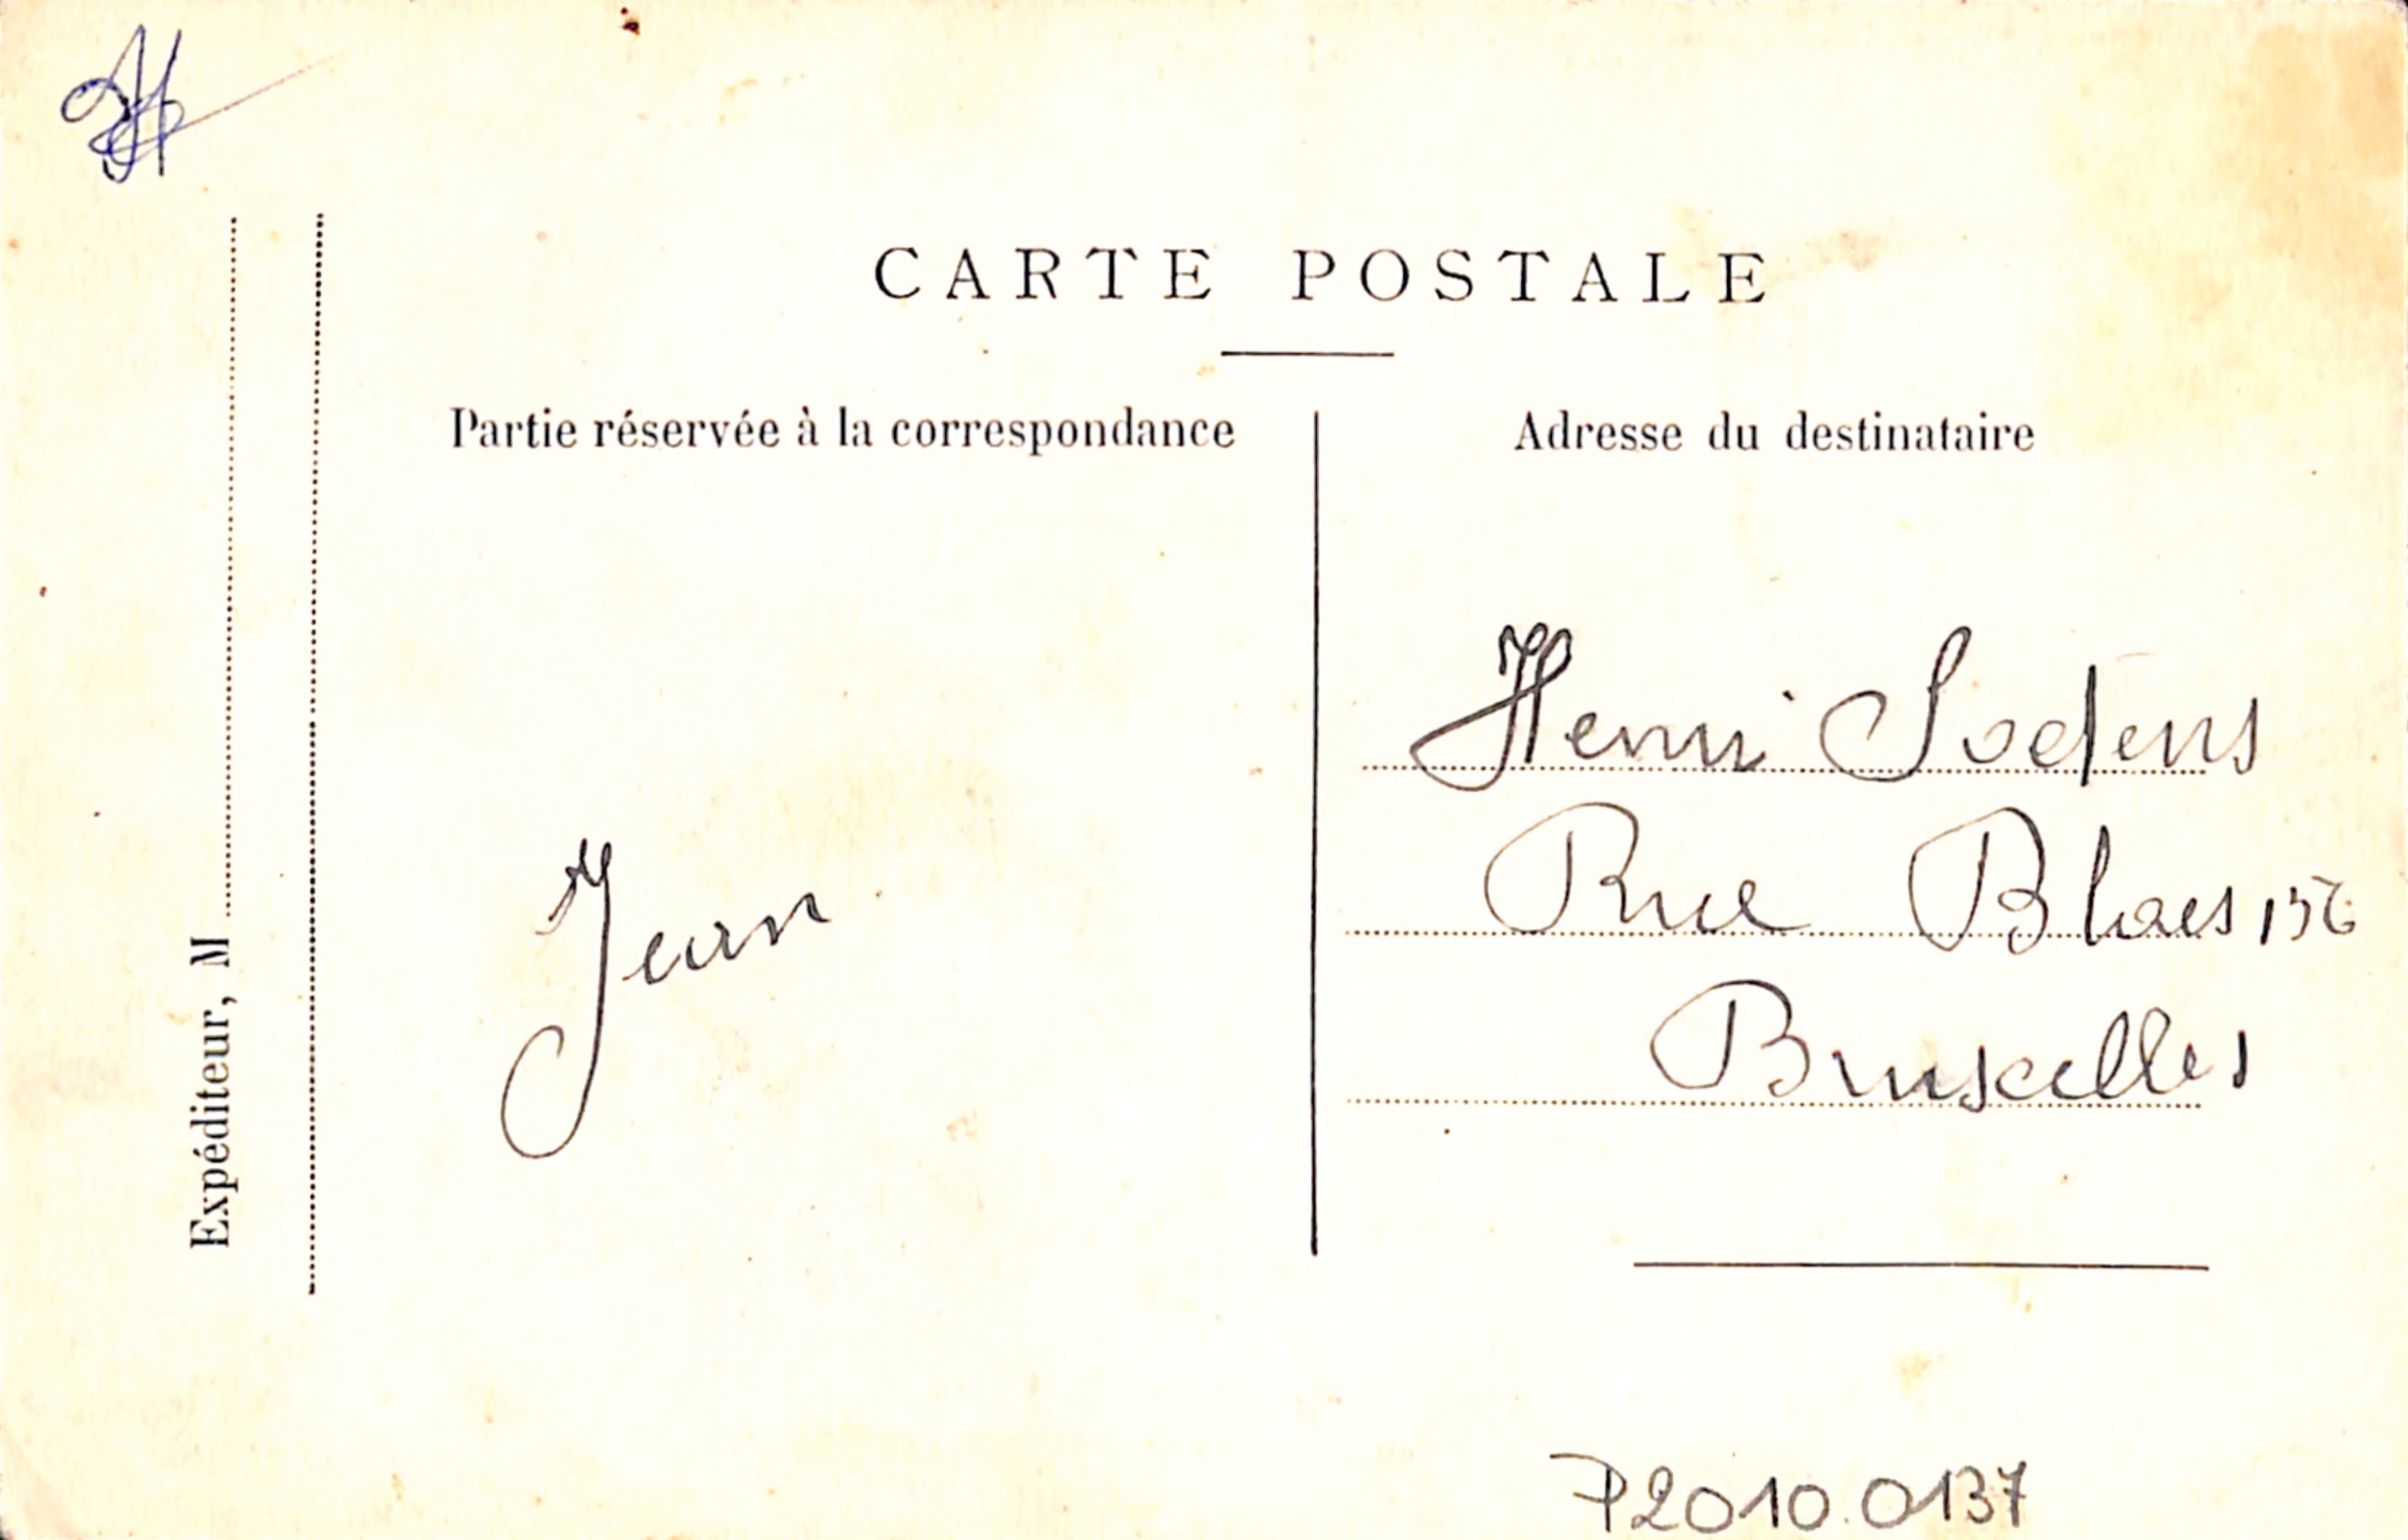 CARTE POSTALE
Partie réservée à la correspondance
Adresse du destinataire
Expéditeur, M
Jean
Henri Soetens
Rue Blaes 156
Bruxelles
P2010.0137